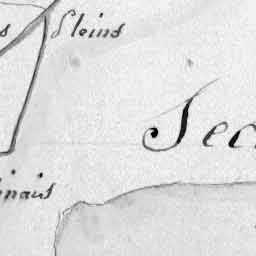 s Pleins
Sec
inais